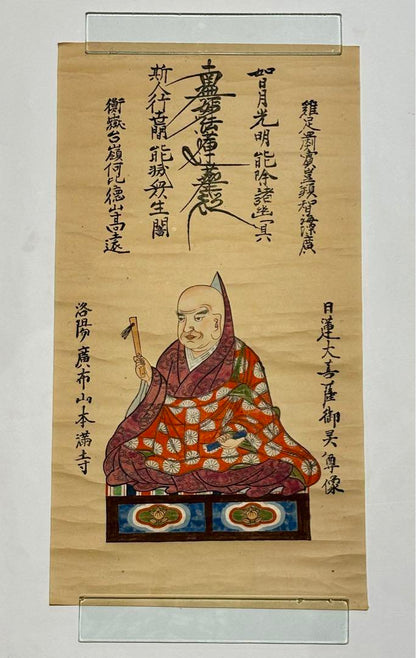 雞足罽賓豈類智海深廣
如日月光明能除諸幽冥
南無妙法蓮華経
斯人行世間能滅衆生闇
衡嶽台嶺何比德山高遠
日蓮大菩薩御尊像
洛陽廣布山本滿寺